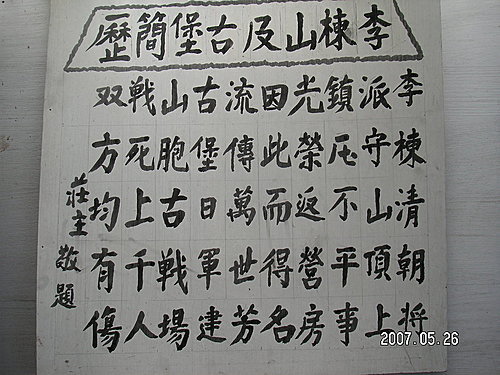 李棟山及古堡簡歷
李棟清朝将
派守山頂上
鎮压不平事
光榮返營房
因此而得名
流傳萬世芳
古堡日軍建
山胞古戦場
戦死上千人
双方均有傷
莊主敬題
2007.05.26